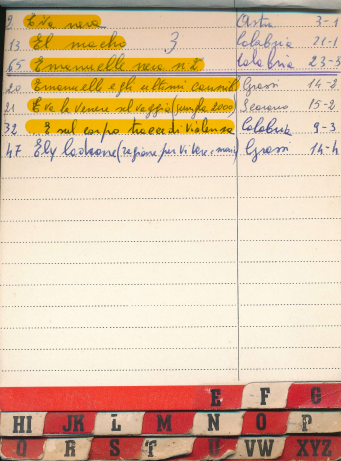 9 Eva nera Astra 3-1
13 El macho 3 Calabria 21-1
65 Emanuelle nera n. 2 Calabria 23-3
20 Emanuelle e gli ultimi cannib Grassi 14-2
21 Eva la Venere selvaggia (jungla 2000) 15-2
32 E sul corpo tracce di violenza Calabria 9-3
47 Ely Ladrone (ragione per vivere e Grassi 14-4
E F G
HI JK L M N O P
Q R S T U VW XYZ